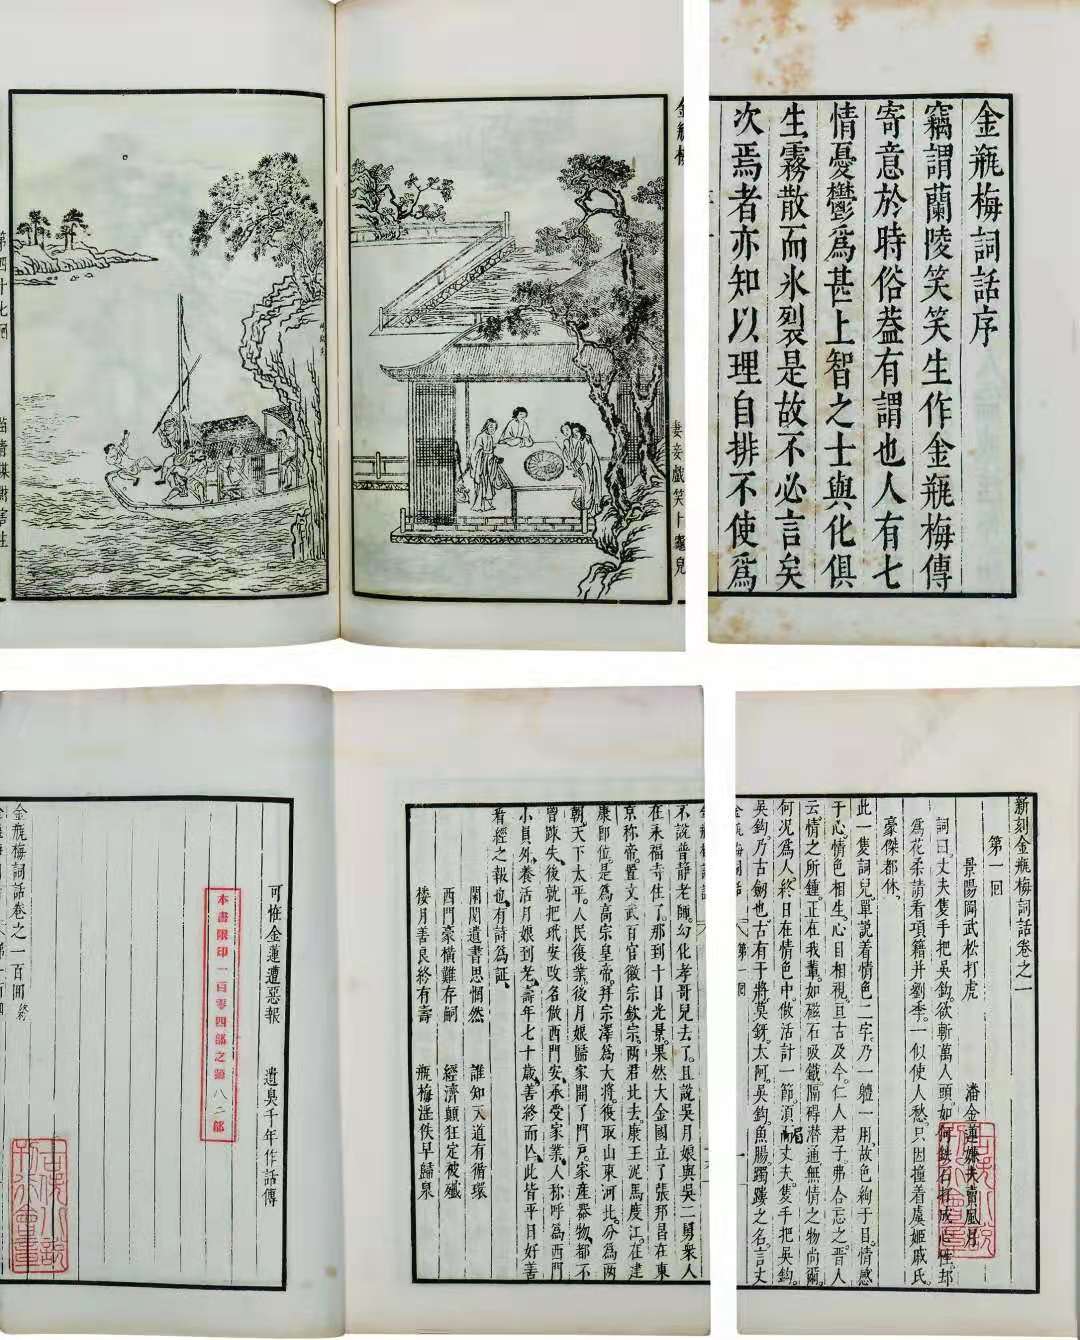 金瓶梅
妻妾戲笑卜龜兒
第四十七回
苗青謀財害生
金瓶梅詞話序
竊謂蘭陵笑笑生作金瓶梅傳
寄意於時俗葢有謂也人有七
情憂鬱爲甚上智之士與化俱
生霧散而氷裂是故不必言矣
次焉者亦知以理自排不使爲
不說普静老師幻化孝哥兒去了且說吳月娘與吳二舅衆人
在永福寺住了那到十日光景果然大金國立了張邦昌在東
京称帝置文武百官徽宗欽宗兩君北去康王泥馬度江在建
康即位是為高宗皇帝拜宗澤為大將復取山東河北分為兩
朝天下太平人民復業後月娘歸家開了門戸家産器物都不
曾踈失後就把玳安改名做西門安承受家業人称呼為西門
小員外養活月娘到老壽年七十歲善終而亾此皆平日好善
看經之報也有詩為証
閑閱遺書思惘然 誰知天道有循環
西門豪橫難存嗣 經濟顛狂定被殲
樓月善良終有壽 瓶梅淫佚早歸泉
可怪金蓮遭惡報 遺臭千年作話傳
本書限印一百零四部之第八二部
金瓶梅詞話卷之一百回終
古佚小說刊行會章
新刻金瓶梅詞話卷之一
第一回
景陽岡武松打虎 潘金蓮嫌夫賣風月
詞曰丈夫隻手把吳鈎欲斬萬人頭如何鉄石打成心性却
為花柔請看項籍并劉季一似使人愁只因撞着虞姬戚氏
豪傑都休
此一隻詞兒單說着情色二字乃一體一用故色絢于目情感
于心情色相生心目相視亘古及今仁人君子弗合忘之晋人
云情之所鍾正在我輩如磁石吸鐵隔碍潜通無情之物尚爾
何况為人終日在情色中做活計一節須而丈夫隻手把吳鈎
吳鈎乃古劒也古有干將莫鋣太阿吳鈎魚腸躅䠱之名言丈
古佚小說刊行會章